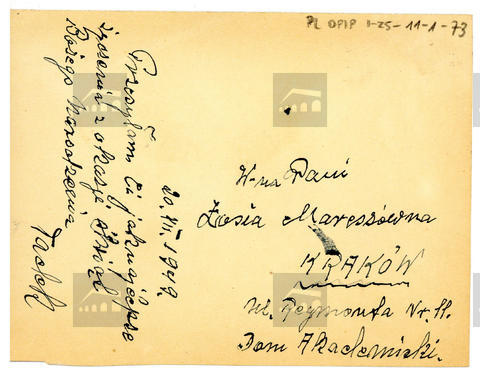 PL OPiP I-25-11-1-73
20.XII 1948.
Przesyłam Ci jaknajlepsze
życzenia z okazji Świąt
Bożego Narodzenia
Tadek
W-na Pani
Zosia Mareszówna
KRAKÓW
Ul. Reymonta Nr. 11.
Dom Akademicki.